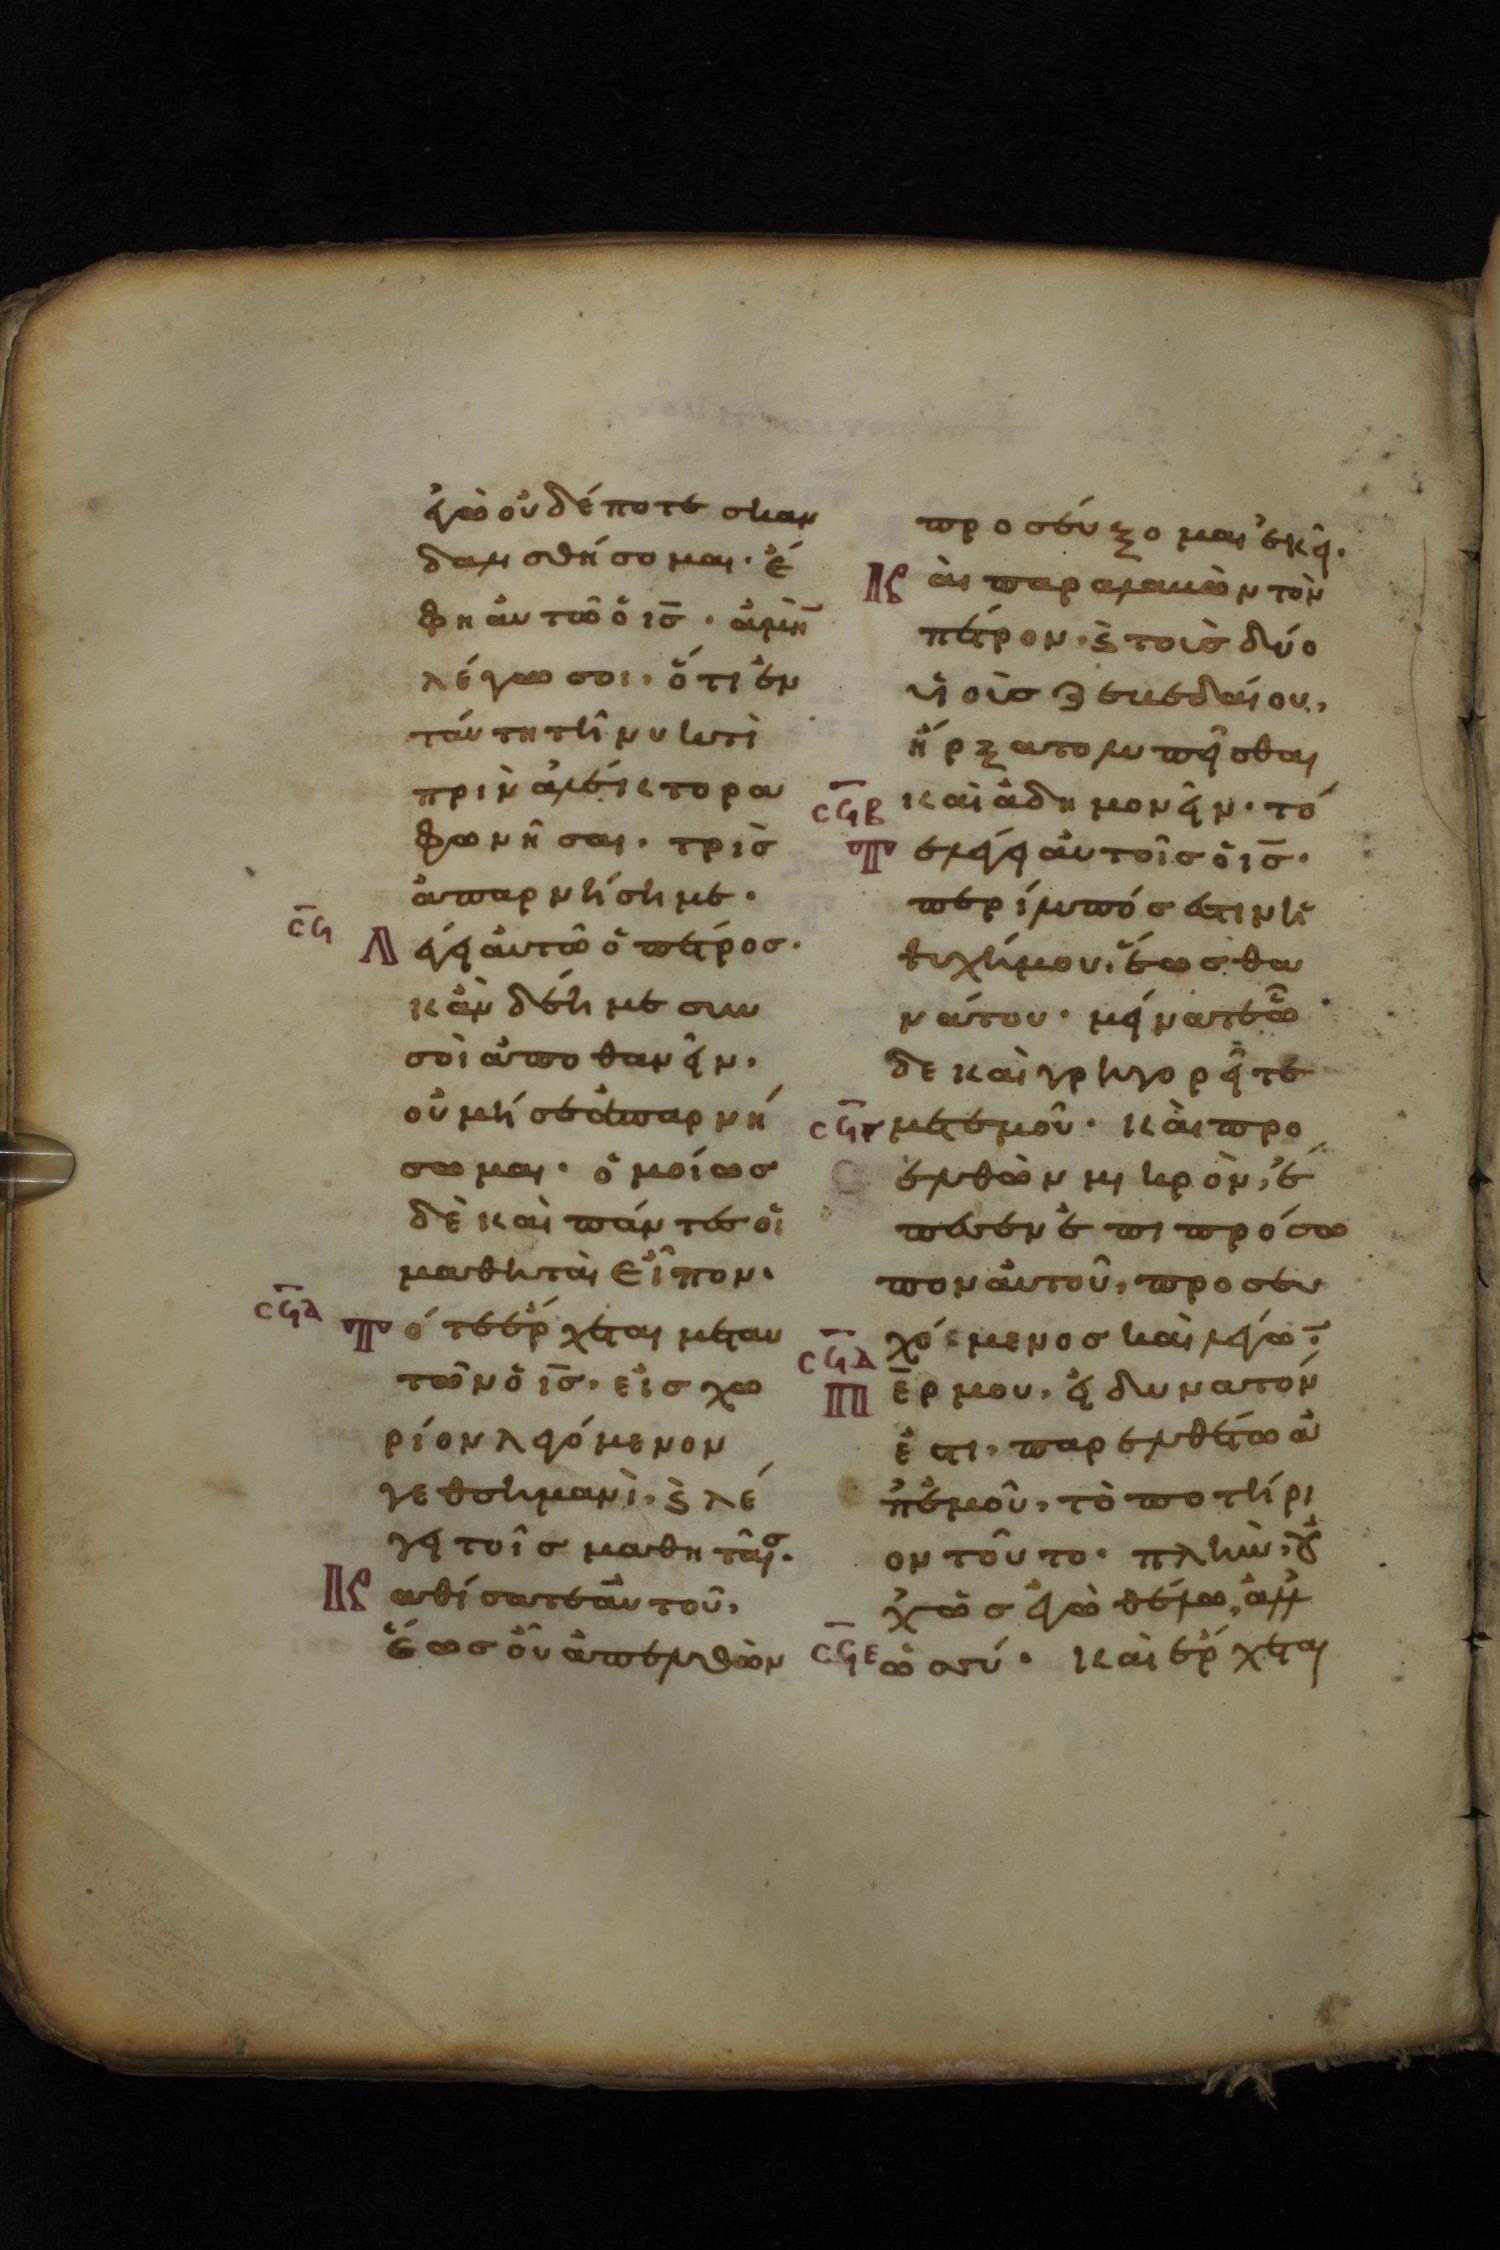 ἐγὼ οὐδέποτε σκαν
δαλισθήσομαι· ἔ
φη αὐτῶ ὁ ις̅· ἀμὴν
λέγω σοι, ὅτι ἐν
ταύτη τῆ νυκτὶ
πρὶν ἀλέκτορα
φωνῆσαι· τρὶς
ἀπαρνήση με·
σϟ
Λέγει αὐτῶ ὁ πέτρος·
κἂν δέη με συν
σοὶ ἀποθανεῖν,
οὐ μή σε ἀπαρνή
σωμαι· ὁμοίως
δὲ καὶ πάντες οἱ
μαθηταὶ εἶπον·
σϟα
Τότε ἔρχεται μετ αυ
τῶν ὁ ις̅· εἰς χω
ρίον λεγόμενον
γεθσημανὶ, ϗ λέ
γει τοῖς μαθηταῖς·
Καθίσατε αὐτοῦ,
ἕως οὗ ἀπελθὼν
προσεύξομαι ἐκεῖ·
Καὶ παραλαβὼν τὸν
πέτρον, ϗ τοὺς δύο
υἱοὺς ζεβεδαίου,
ἤρξατο λυπεῖσθαι
σϟβ
καὶ ἀδημονεῖν· τό
Τε λέγει αὐτοῖς ὁ ις̅·
περίλυπός ἐστιν ἡ
ψυχή μου, ἕως θα
νάτου· μείνατε ὧ
δε καὶ γρηγορεῖτε
σϟγ
μετ ἐμοῦ· καὶ προ
ελθὼν μικρὸν, ἔ
πεσεν ἐπι πρόσω
πον αὐτοῦ, προσευ
χόμενος καὶ λέγων·
σϟδ
Πε̅ρ μου, εἰ δυνατόν
ἐστι, παρελθέτω ἀ
π ἐμοῦ, τὸ ποτήρι
ον τοῦτο· πλὴν, οὐ
χ ὡς ἐγὼ θέλω, ἀλλ
σϟε
ὡς σύ· καὶ ἔρχεται